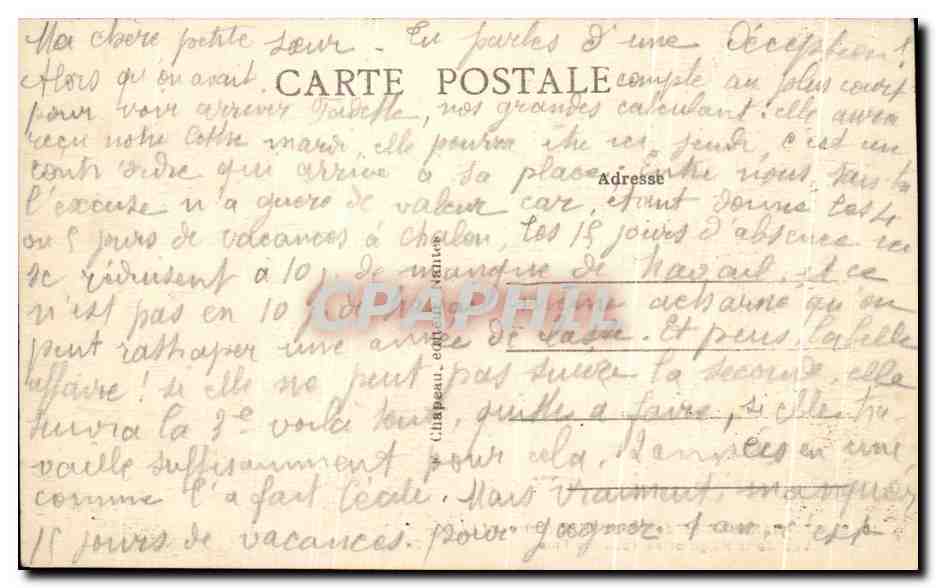 Ma chère petite sœur - Tu parles d'une déception!
Alors qu'on avait compté au plus court
CARTE POSTALE
pour voir arriver Fadette, nos grandes calculant: elle aura
reçu notre lettre mardi, elle pourra être ici jeudi, c'est un
contr'ordre qui arrive à sa place. Entre nous,
Adresse
l'excuse n'a guère de valeur car, étant donné les 4
ou 5 jours de vacances à Chalon, les 15 jours d'absence ici
se réduisent à 10 j. de manque de travail, et ce
n'est pas en 10 j. acharné qu'on
CPAPHIL
peut rattraper une année de classe. Et puis, la belle
affaire! si elle ne peut pas suivre la seconde, elle
suivra la 3e voilà tout, quitte à faire, si elle tra-
vaille suffisamment pour cela, 2 années en une
comme l'a fait Cécile. Mais vraiment, manquer
15 jours de vacances pour gagner 1 an
Chapeau, editeur, Nantes